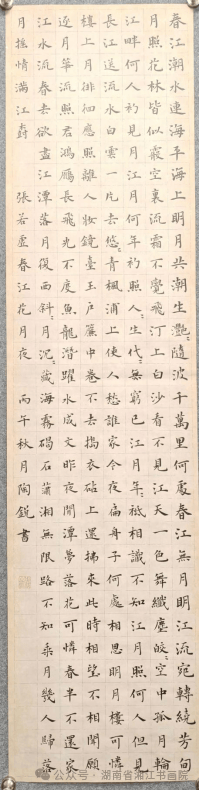 春江潮水連海平海上明月共潮生灧〻隨波千萬里何處春江無月明江流宛轉繞芳甸
月照花林皆似霰空裏流霜不覺飛汀上白沙看不見江天一色無纖塵皎〻空中孤月輪
江畔何人初見月江月何年初照人〻生代〻無窮已江月年〻祇相識不知江月照何人但見
長江送流水白雲一片去悠〻青楓浦上使人愁誰家今夜扁舟子何處相思明月樓可憐
樓上月徘徊應照離人妝鏡臺玉户簾中卷不去搗衣砧上還拂來此時相望不相聞願
逐月華流照君鴻鴈長飛光不度魚龍潛躍水成文昨夜閒潭夢落花可憐春半不還家
江水流春去欲盡江潭落月復西斜〻月沉〻藏海霧碣石瀟湘無限路不知乘月幾人歸落
月摇情滿江樹 張若虛春江花月夜 丙午秋月陶銳書
公众号·湖南省湘江书画院